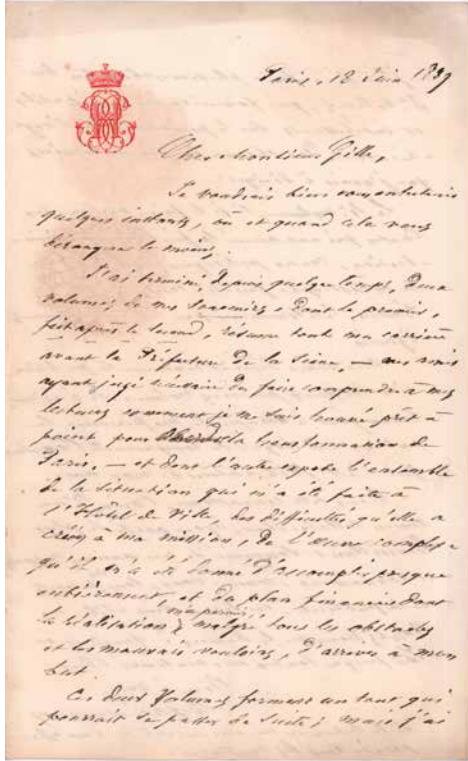 Paris, 18 Juin 1889
Cher Monsieur Gille,
Je voudrais bien vous entretenir
quelques instants, où et quand cela vous
dérangera le moins.
J'ai terminé, depuis quelque temps, deux
volumes de mes Souvenirs, dont le premier,
fait après le second, résume toute ma carrière
avant la Préfecture de la Seine, — mes amis
ayant jugé nécessaire de faire comprendre à mes
lecteurs comment je me suis trouvé prêt à
point pour la transformation de
Paris, — et dont l'autre expose l'ensemble
de la situation qui m'a été faite à
l'Hôtel de Ville, des difficultés qu'elle a
créées à ma mission, de l'œuvre complexe
qu'il m'a été donné d'accomplir presque
entièrement, et du plan financier dont
la réalisation m'a permis, malgré tous les obstacles
et les mauvais vouloirs, d'arriver à mon
but.
Ces deux Volumes forment un tout qui
pourrait se passer de suite; mais j'ai